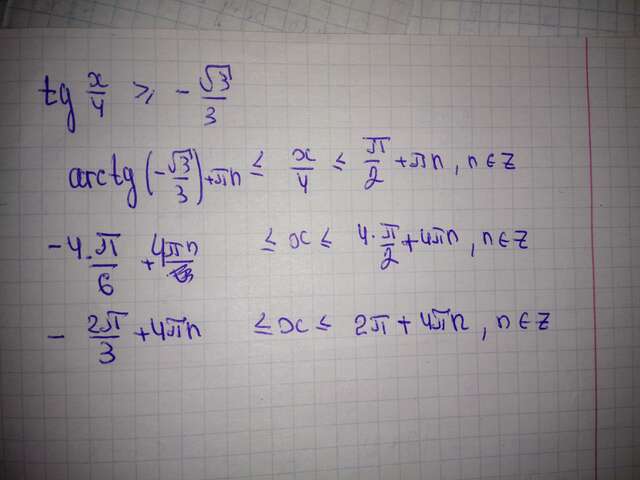 tg x/4 ≥ -√3/3
arctg(-√3/3)+πn ≤ x/4 ≤ π/2 + πn, n∈z
-4·π/6 + 4πn ≤ x ≤ 4·π/2 + 4πn, n∈z
- 2π/3 + 4πn ≤ x ≤ 2π + 4πn, n∈z